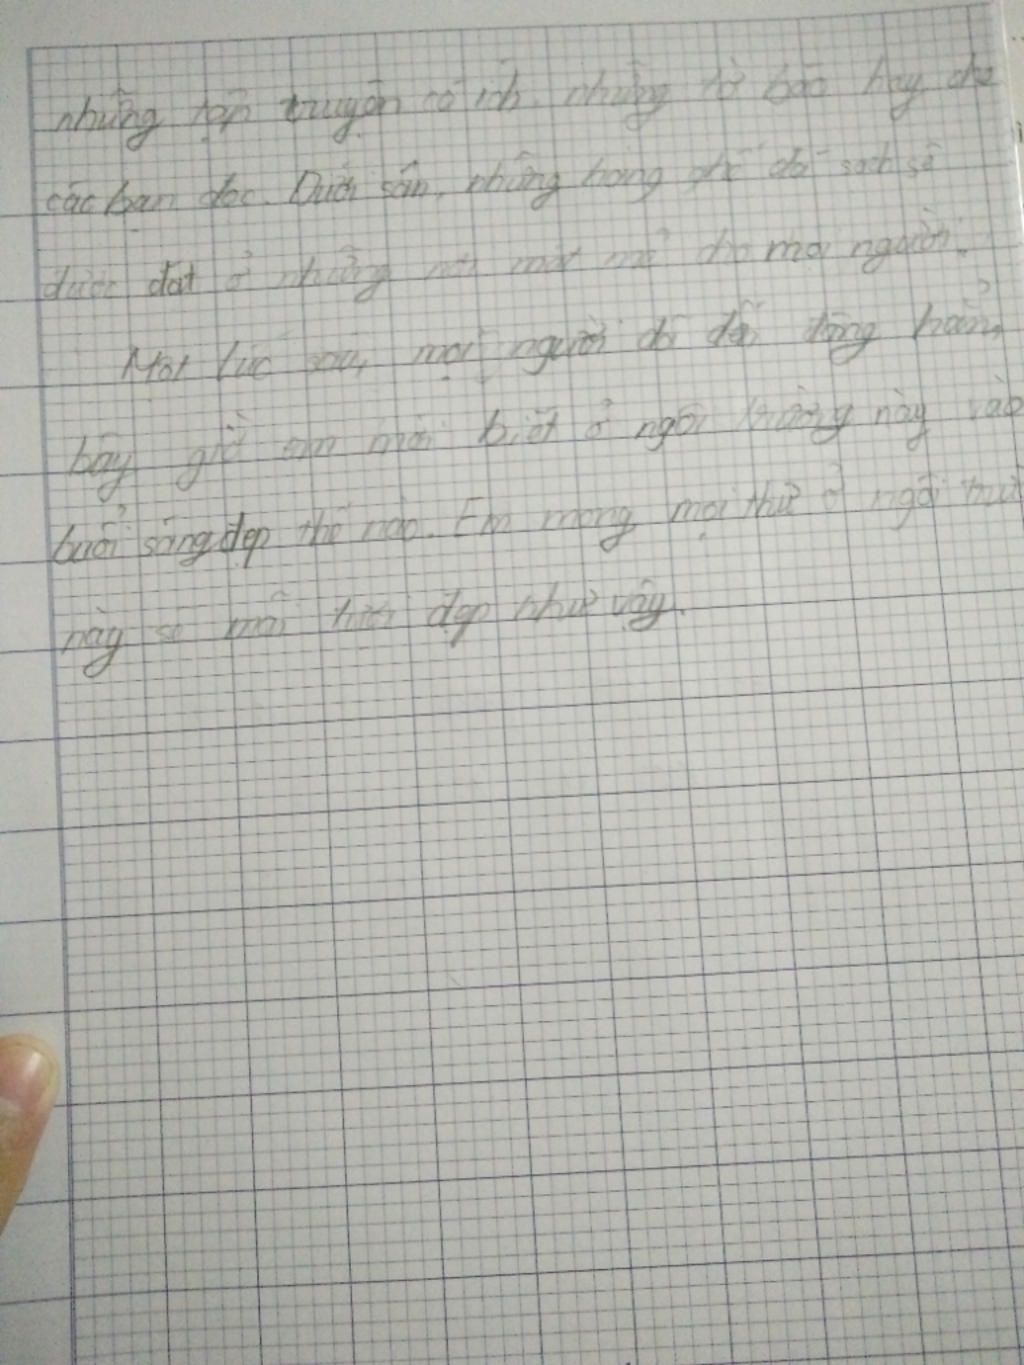 những tập truyện có ích, những tờ báo hay cho
các bạn đọc. Dưới sân, những hàng ghế đá sạch sẽ
được đặt ở những nơi mát mẻ cho mọi người.
Một lúc sau, mọi người đã đến đông hơn,
bây giờ em mới biết ở ngôi trường này vào
buổi sáng đẹp thế nào. Em mong mọi thứ ở ngôi
này sẽ mãi tươi đẹp như vậy.